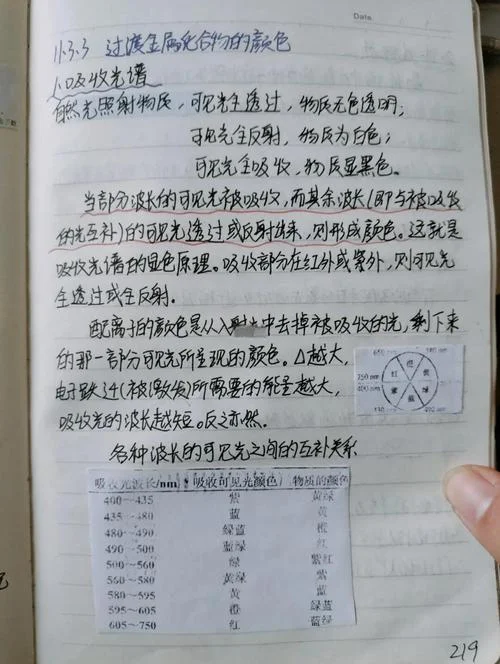 Date.
11.3.3 过渡金属化合物的颜色
1.吸收光谱
自然光照射物质，可见光全透过，物质无色透明；
可见光全反射，物质为白色；
可见光全吸收，物质显黑色。
当部分波长的可见光被吸收，而其余波长(即与被吸收
的光互补)的可见光透过或反射出来，则形成颜色。这就是
吸收光谱的显色原理。吸收部分在红外或紫外，则可见光
全透过或全反射。
配离子的颜色是从入射光中去掉被吸收的光，剩下来
的那一部分可见光所呈现的颜色。△越大，
电子跃迁(被激发)所需要的能量越大，
吸收光的波长越短。反之亦然。
橙 黄
750 nm 红 绿
400 nm 紫 蓝
各种波长的可见光之间的互补关系
吸收光波长/nm 吸收可见光颜色 物质的颜色
400~435 紫 黄绿
435~480 蓝 黄
480~490 绿蓝 橙
490~500 蓝绿 红
500~560 绿 紫红
560~580 黄绿 紫
580~595 黄 蓝
595~605 橙 绿蓝
605~750 红 蓝绿
219